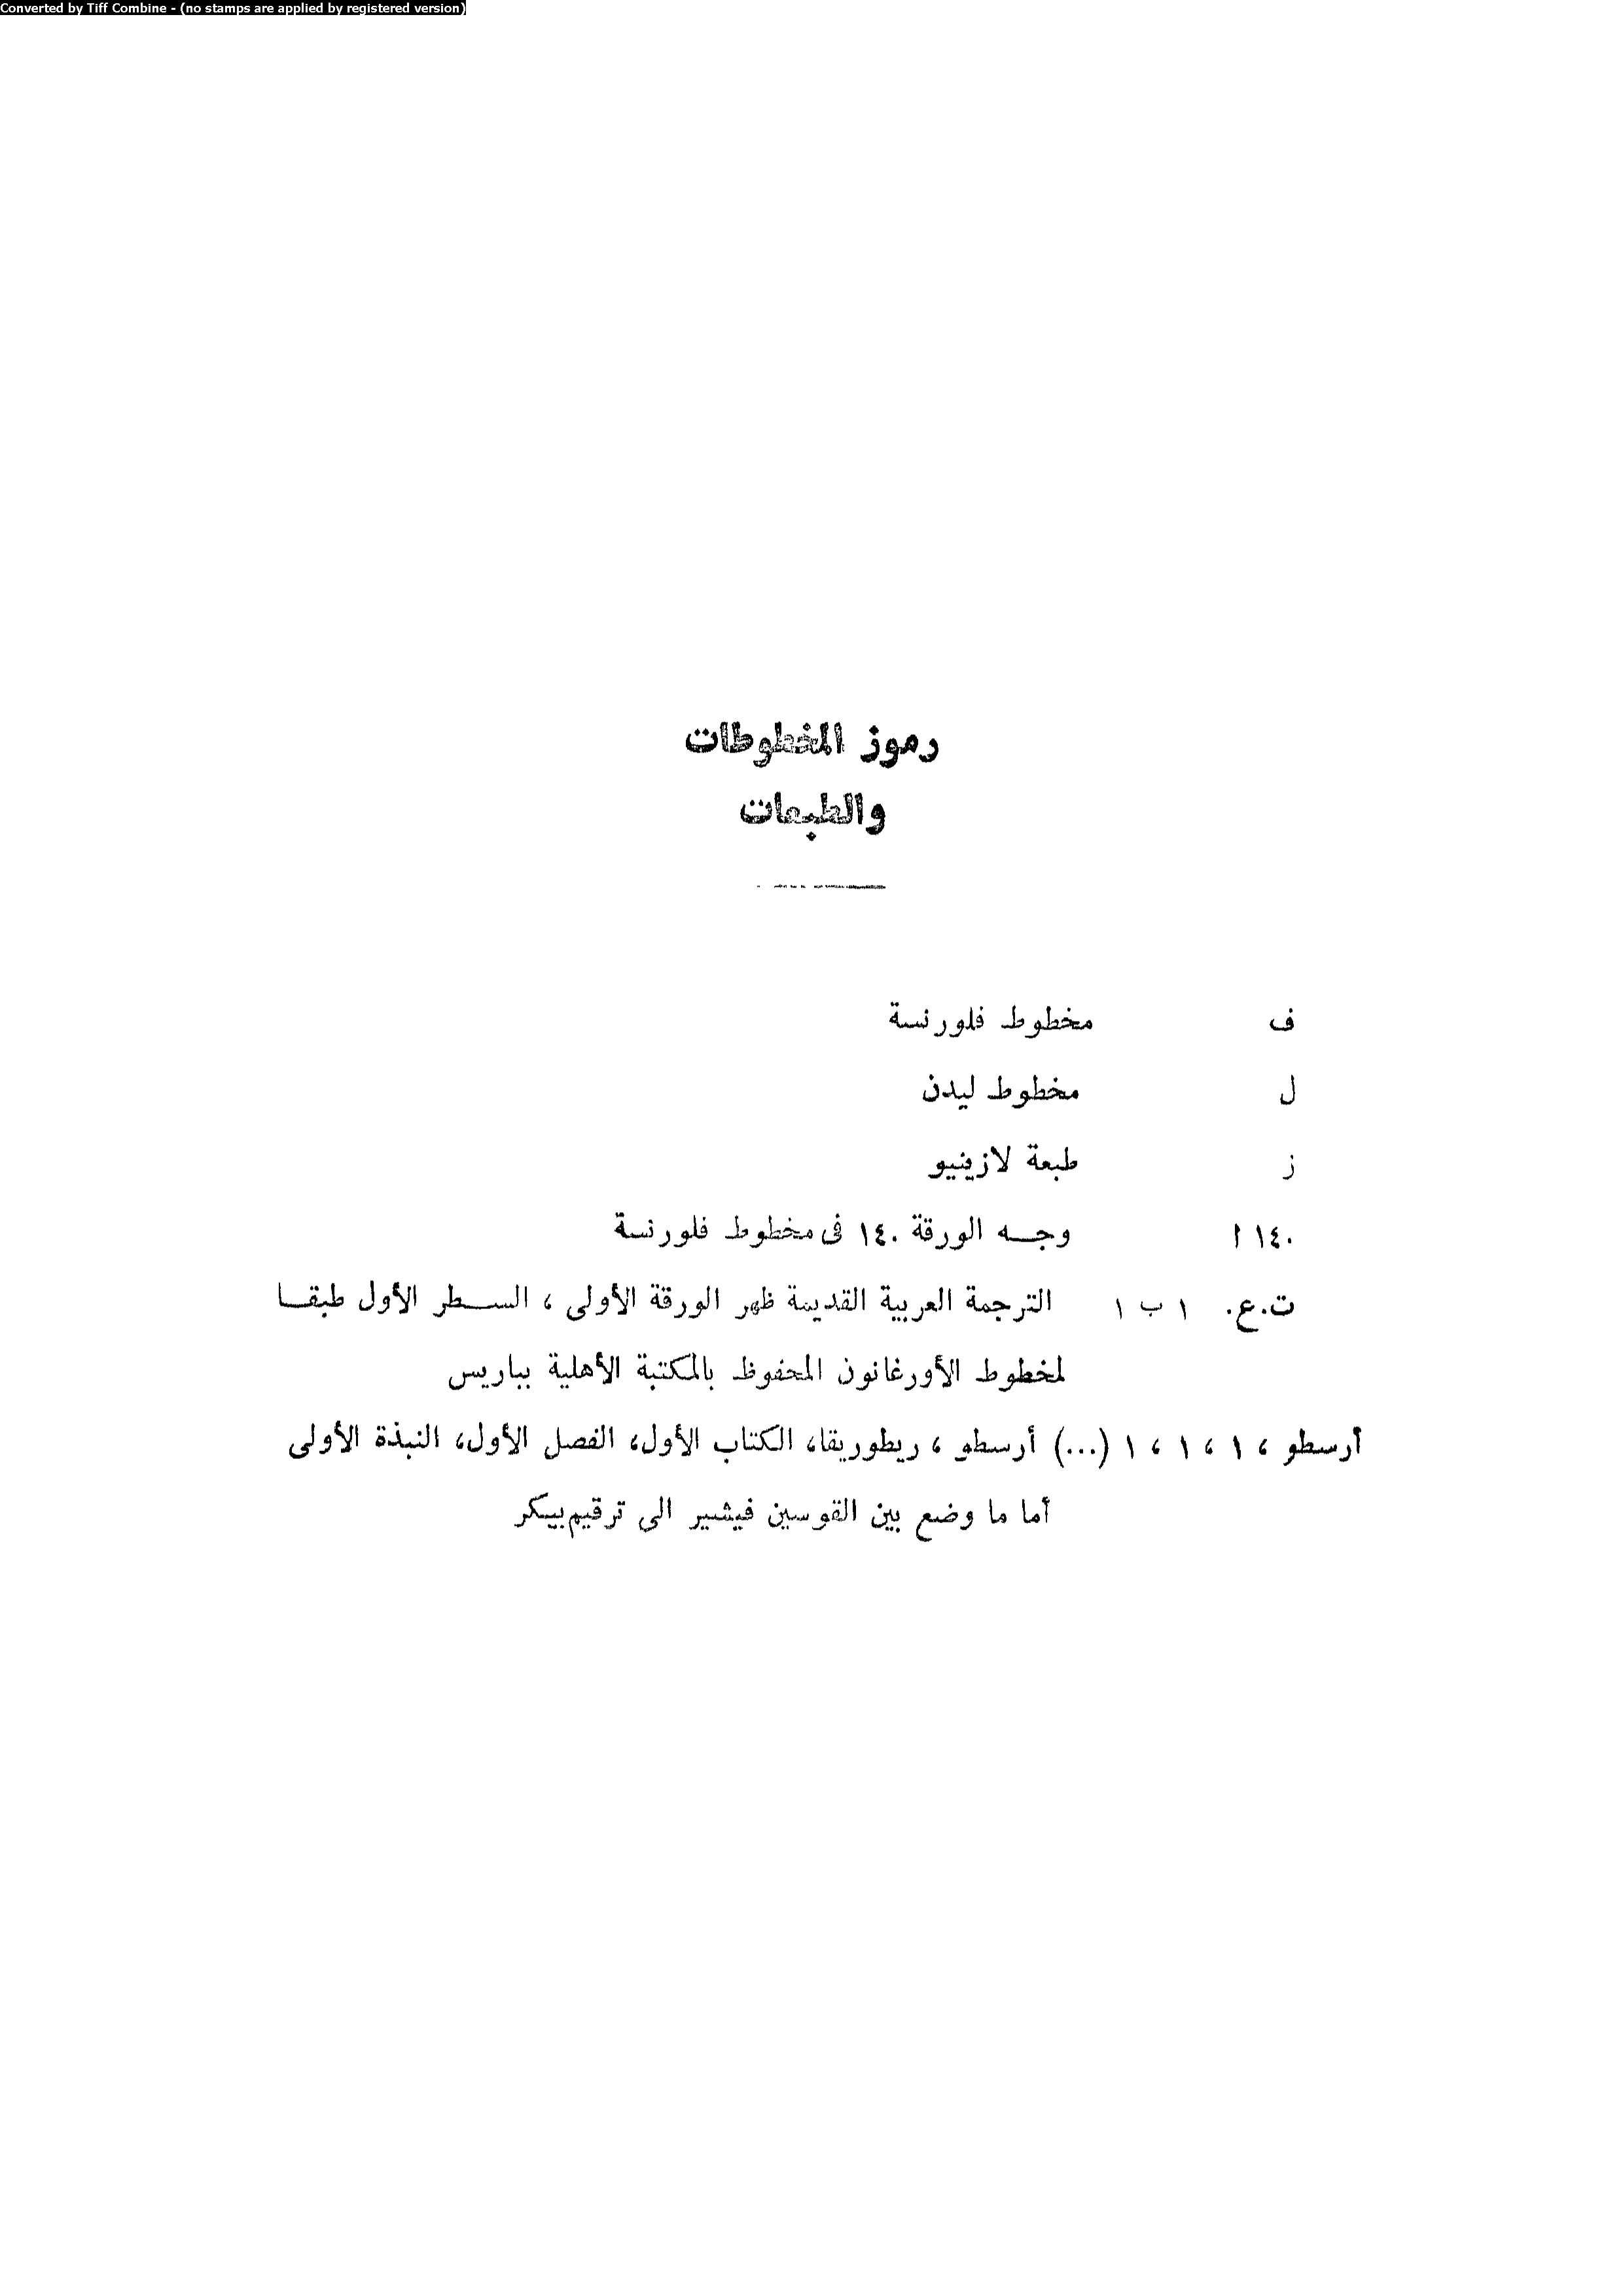 Converted by Tiff Combine - (no stamps are applied by registered version)
رموز المخطوطات
والطبعات
ف مخطوط فلورنسة
ل مخطوط ليدن
ز طبعة لازينيو
١٤٠ ا وجـه الورقة ١٤٠ فى مخطوط فلورنسة
ت.ع. ١ ب ١ الترجمة العربية القديمة ظهر الورقة الأولى ، السـطر الأول طبقـا
لمخطوط الأورغانون المحفوظ بالمكتبة الأهلية بباريس
أرسطو ، ١ ، ١ ، ١ (...) أرسطو ، ريطوريقا، الكتاب الأول، الفصل الأول، النبذة الأولى
أما ما وضع بين القوسين فيشير الى ترقيم بيكر